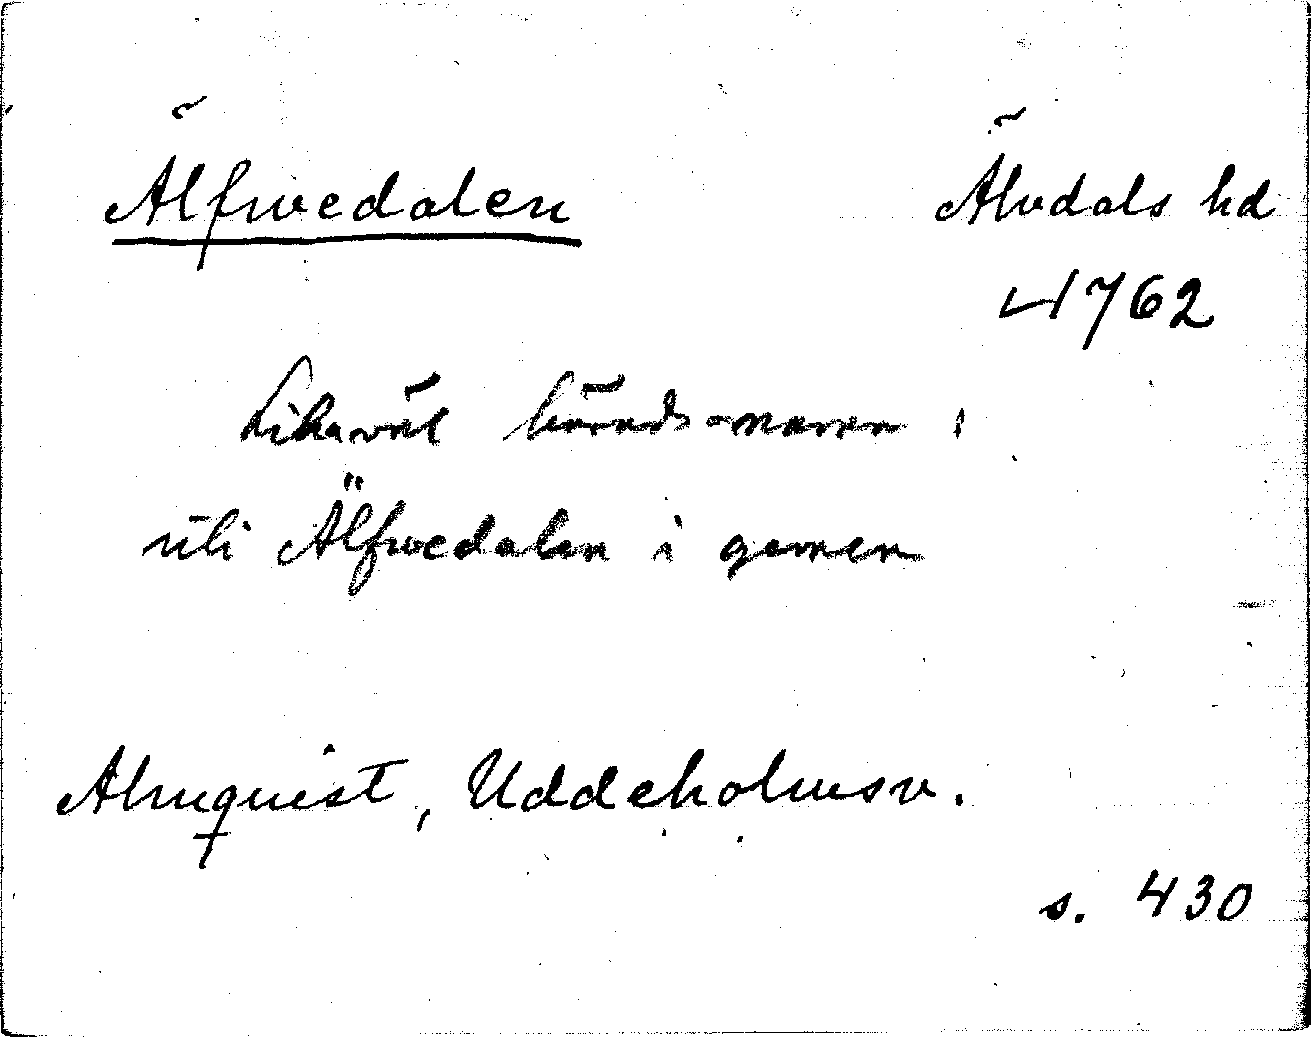 Älfwedalen
Älvdals hd
1762
Likavæl härads-namn :
uti Älfwedalen i gemen
Almquist, Uddeholmsv.
s. 430